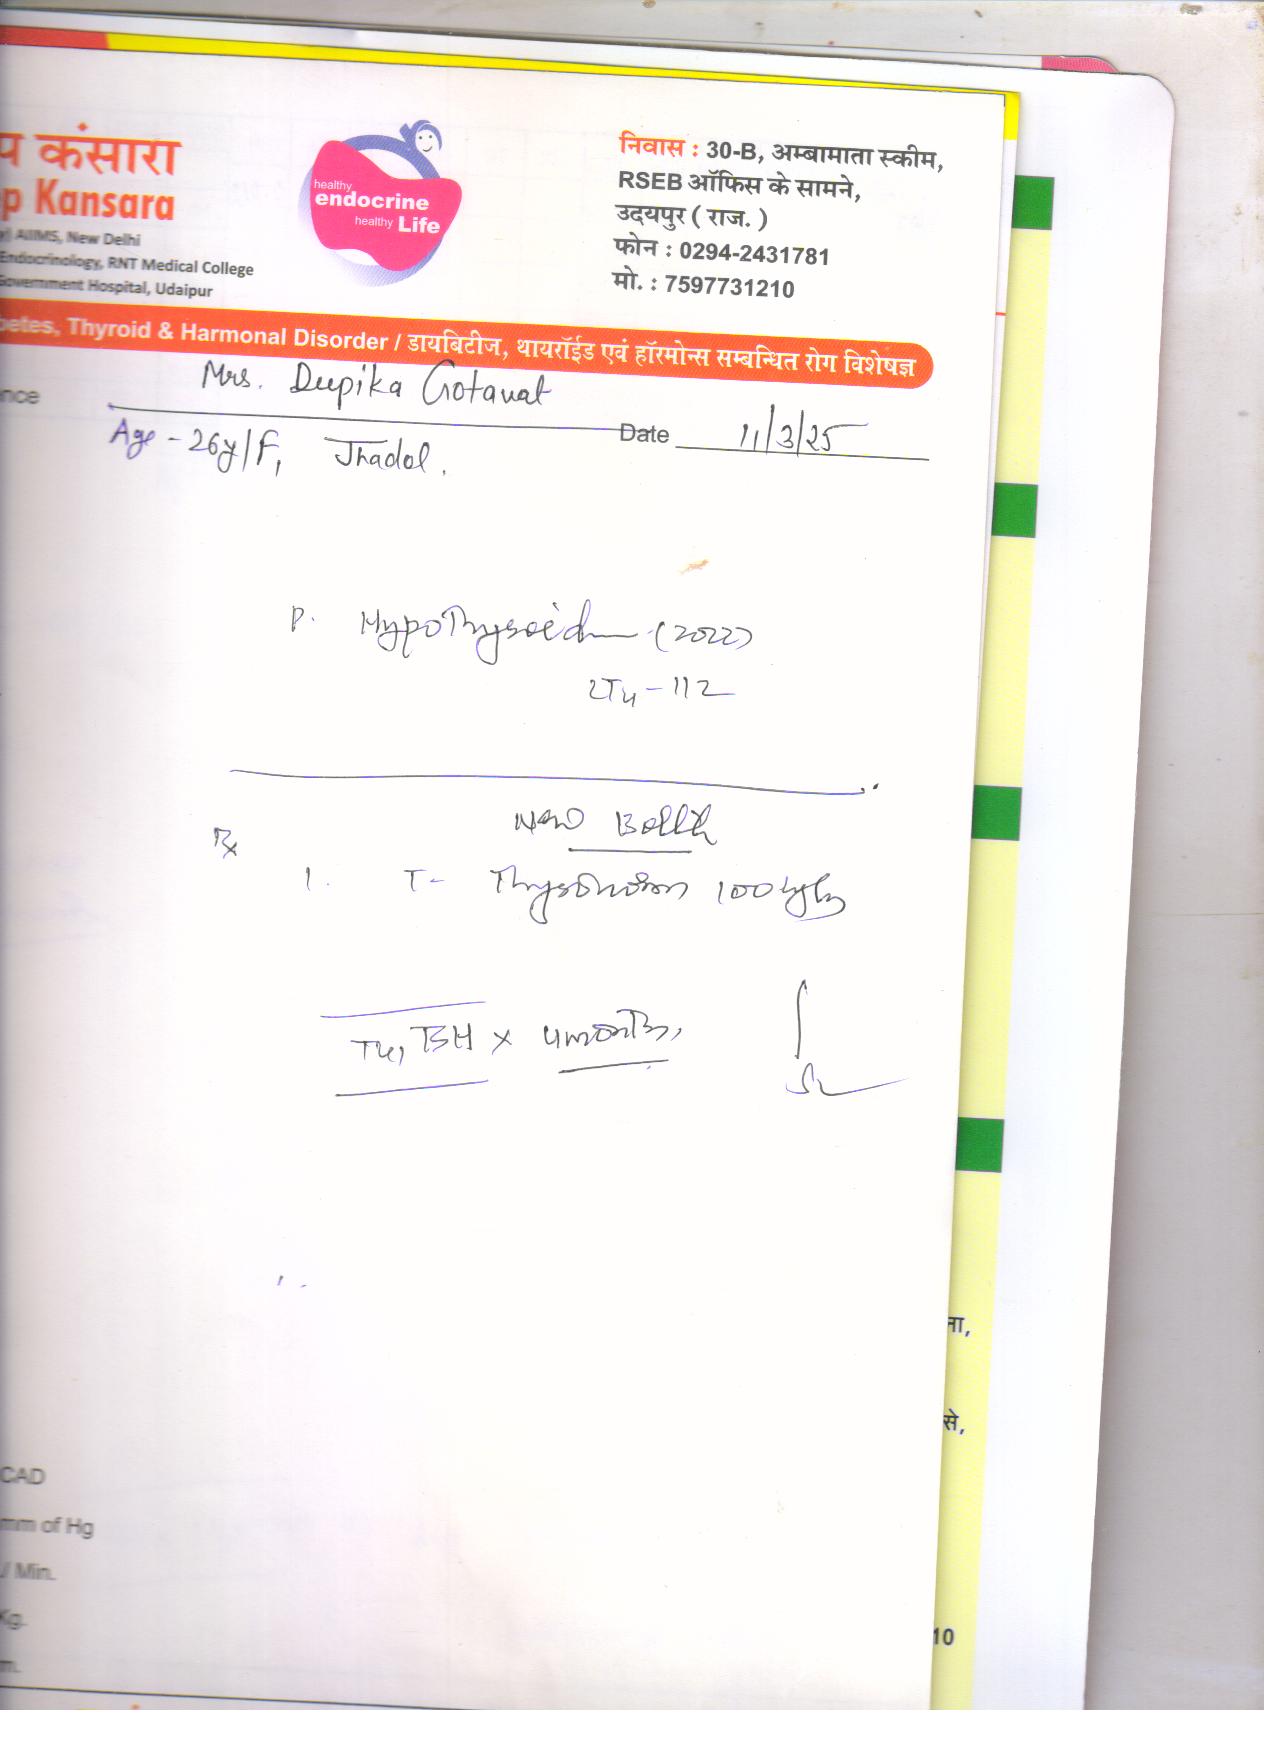 प कंसारा
p Kansara
AIIMS, New Delhi
Endocrinology, RNT Medical College
Government Hospital, Udaipur
healthy
endocrine
healthy Life
निवास : 30-B, अम्बामाता स्कीम,
RSEB ऑफिस के सामने,
उदयपुर ( राज. )
फोन : 0294-2431781
मो. : 7597731210
betes, Thyroid & Harmonal Disorder / डायबिटीज, थायरॉईड एवं हॉरमोन्स सम्बन्धित रोग विशेषज्ञ
nce Mrs. Deepika Gotavat
Date 11/3/25
Age - 26y/F, Jhadol.
P. Hypothyroid (2022)
- 112
Rx
New
1. T- 100
T4, TSH x 4 months,
CAD
mm of Hg
/ Min.
Kg.
m.
ना,
से,
10